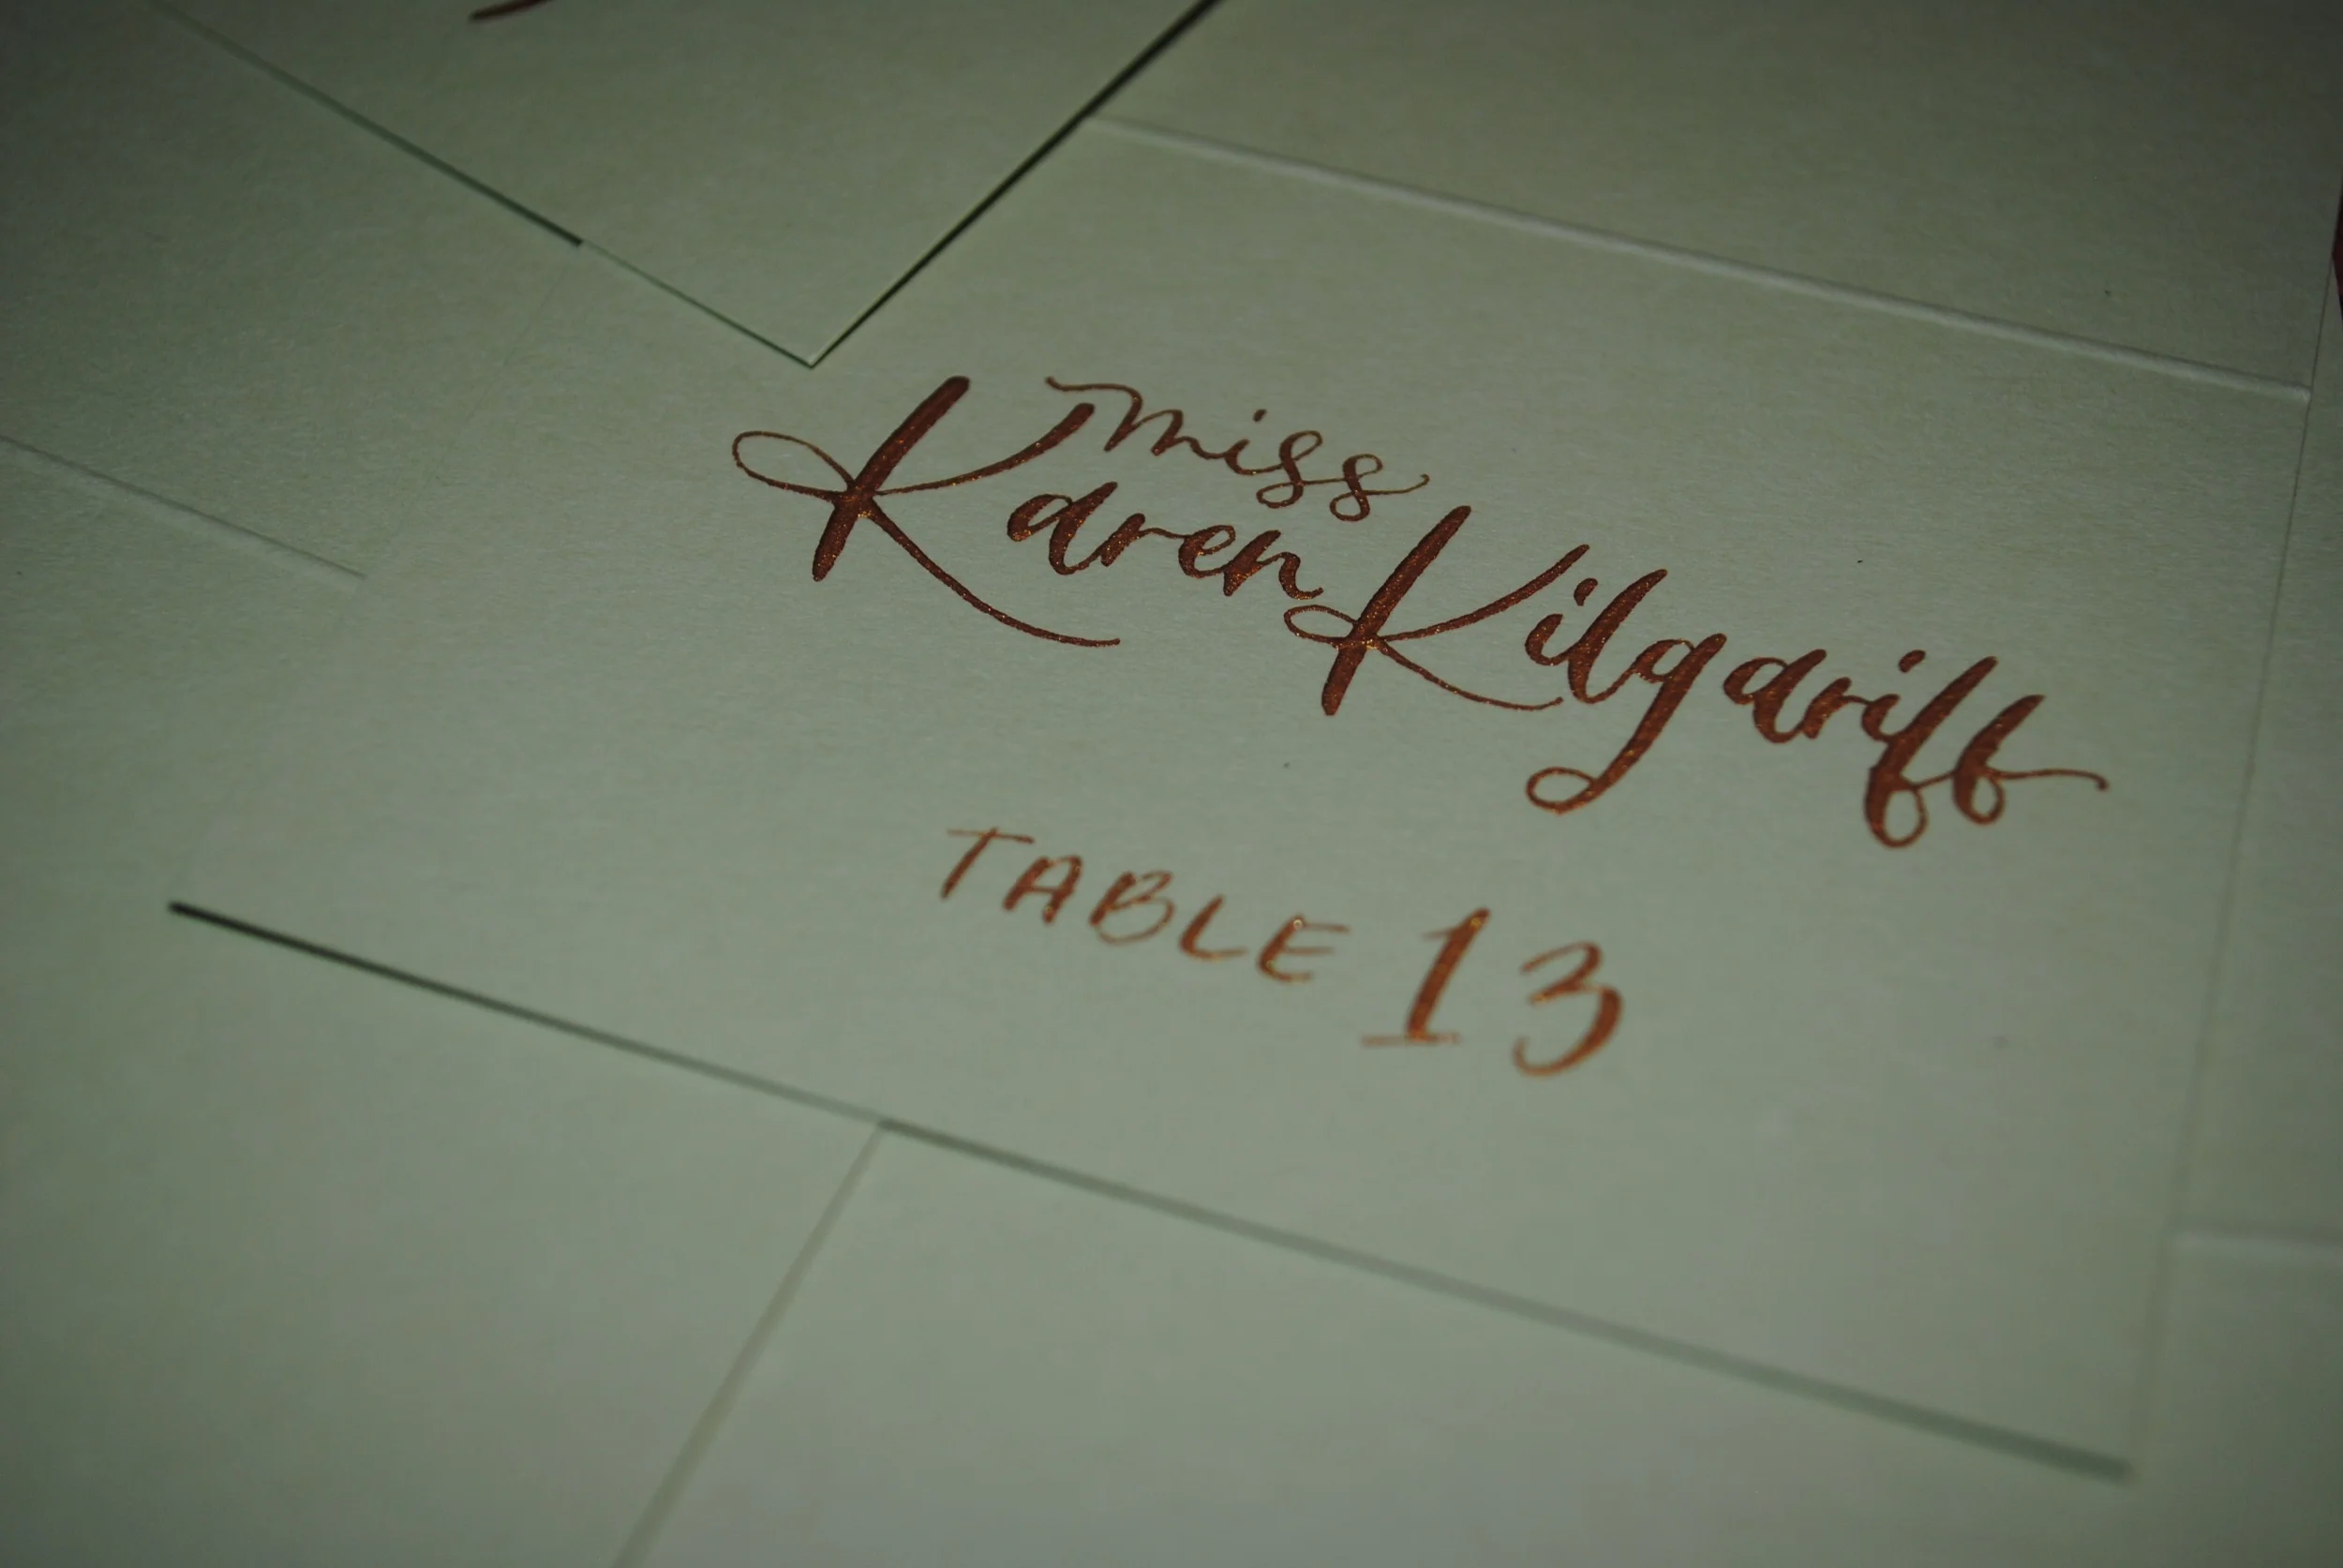 miss
Karen Kilgariff
TABLE 13